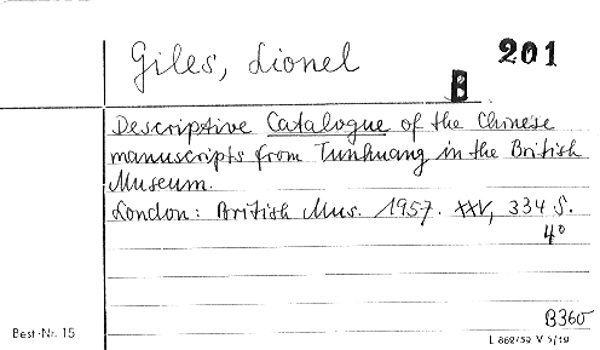 Giles, Lionel
B 201
Descriptive Catalogue of the Chinese
manuscripts from Tunhuang in the British
Museum.
London: British Mus. 1957. XXV, 334 S.
4°
B360
Best.-Nr. 15
L 862/59 V 5/19